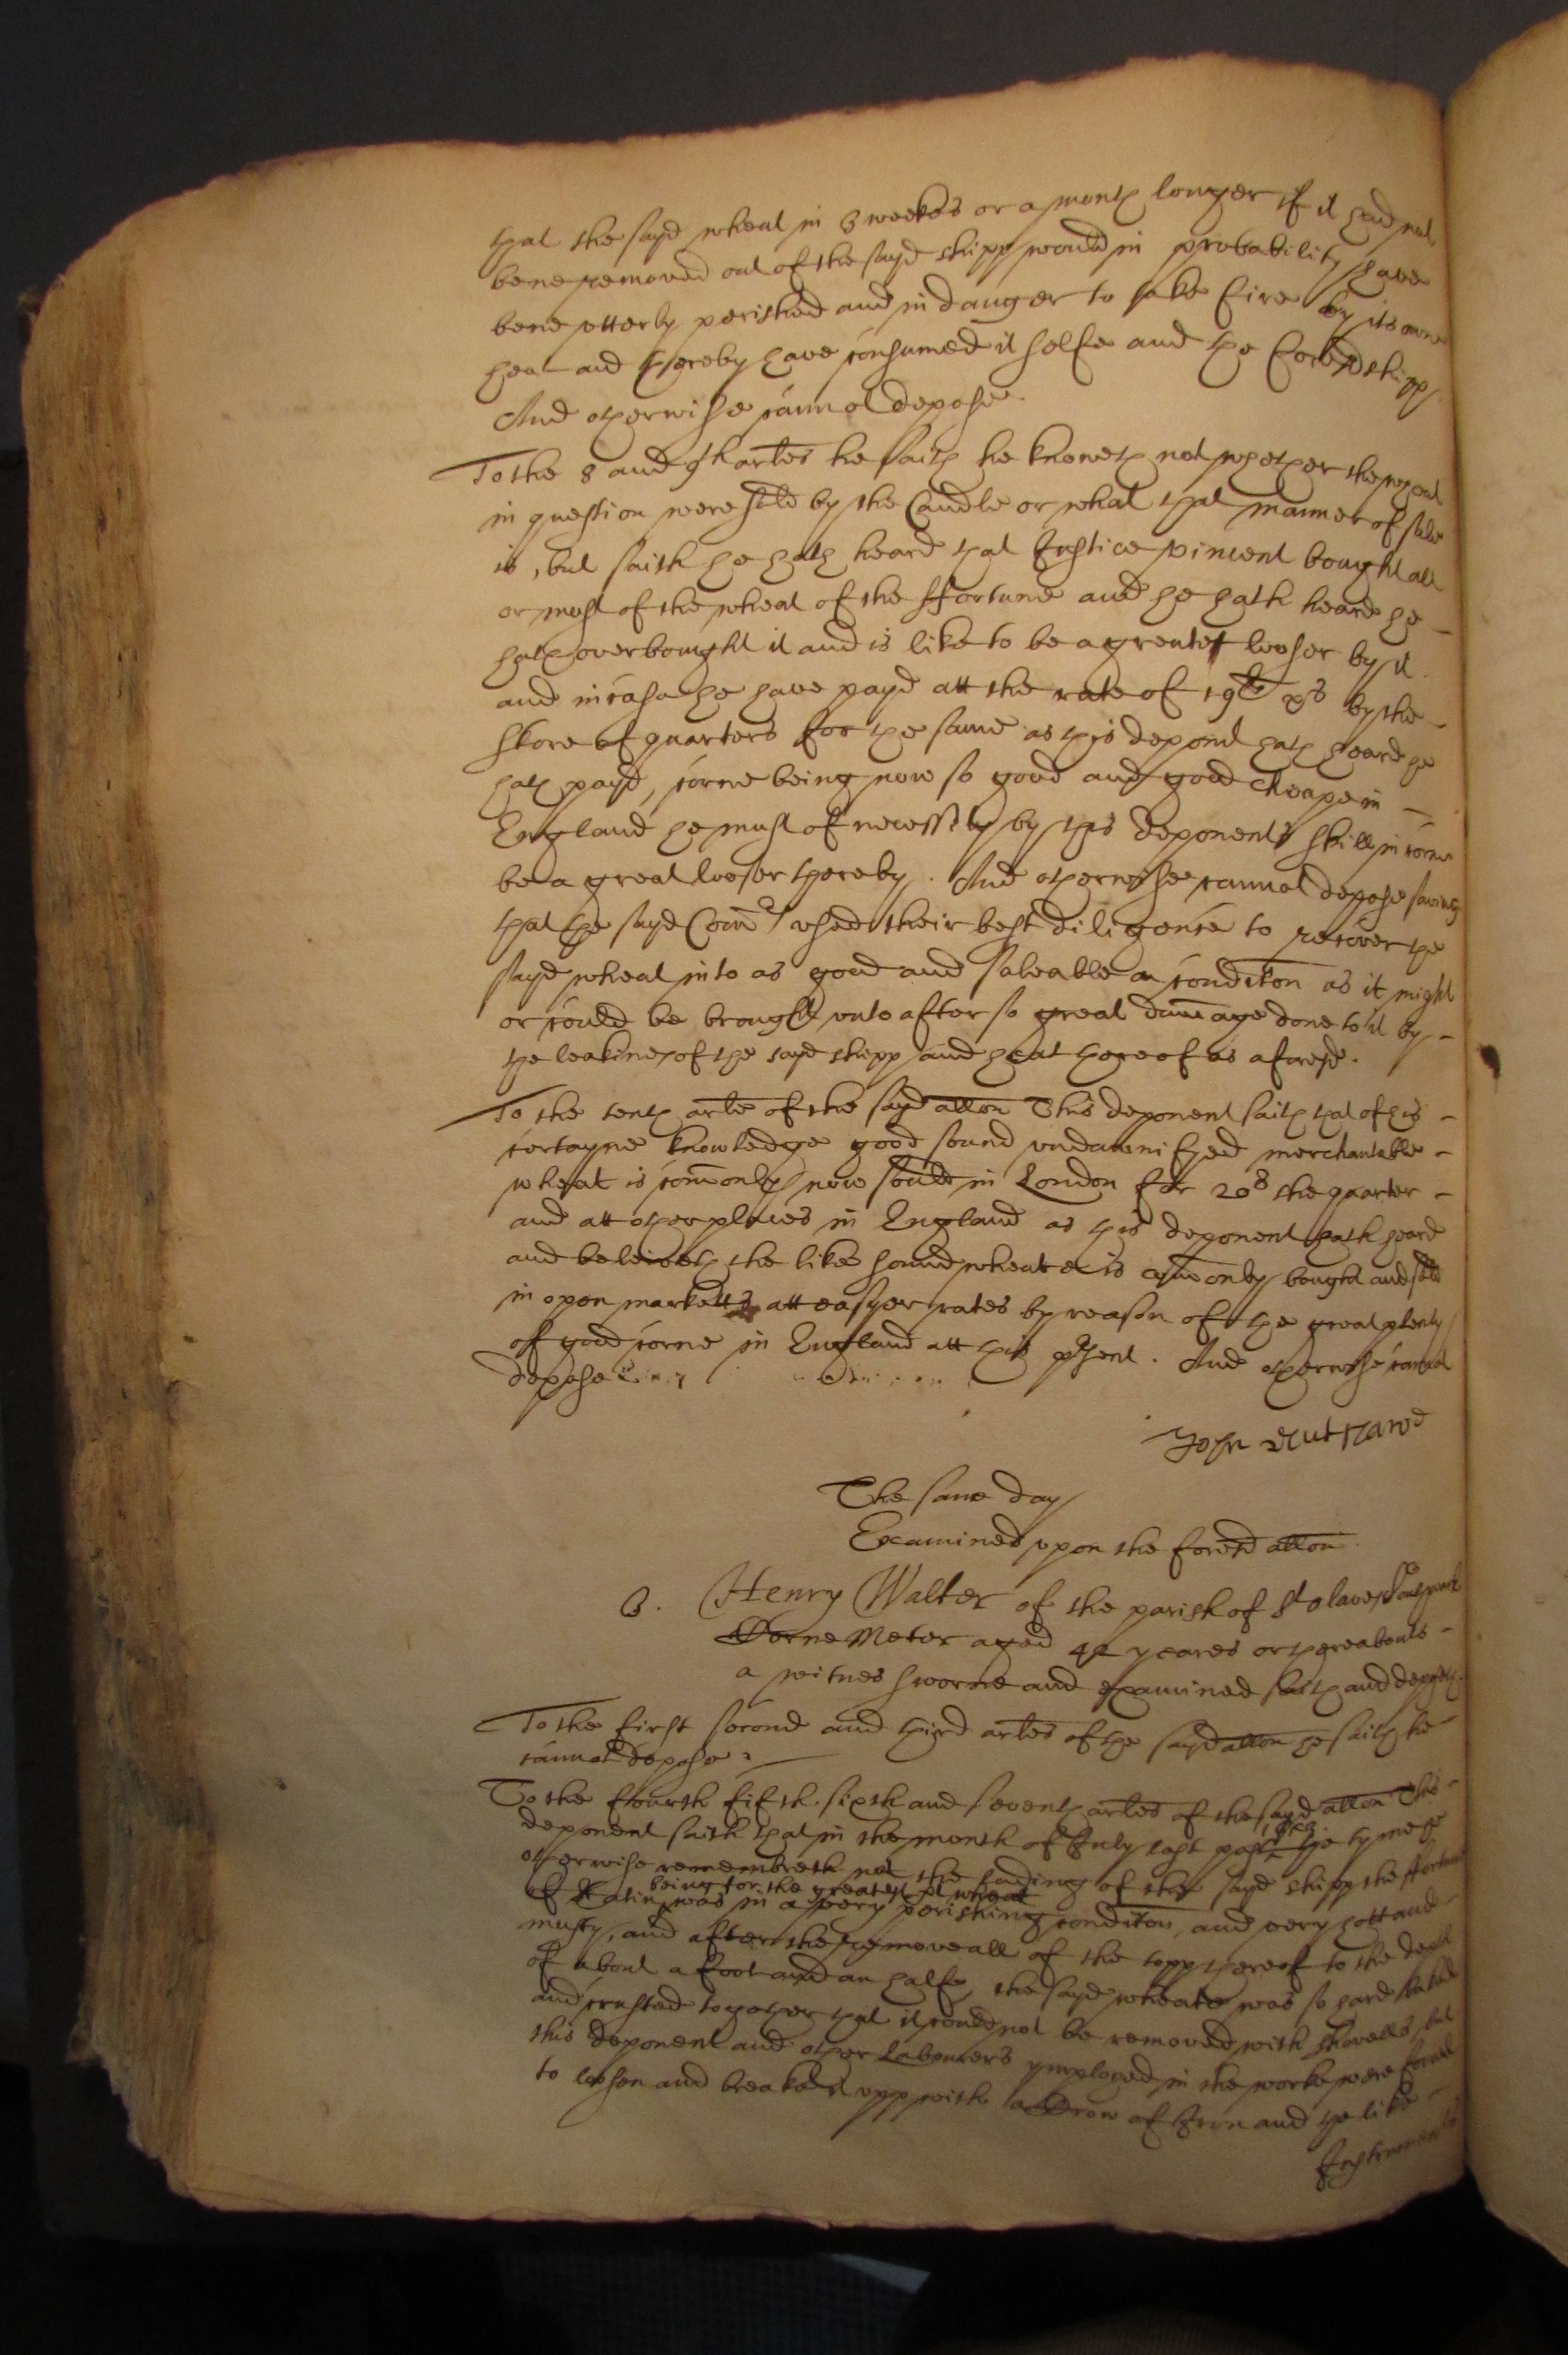 that the sayd wheat in 3 weekes or a month longer if it had not
bene removed out of the sayd shipp would in probability have
bene utterly perished and in danger to take fire by its owne
heat and thereby have consumed it selfe and the foresd shipp
And otherwise cannot depose.
To the 8 and 9th artes he saith he knoweth not whether the wheat
in question were sold by the Candle or what that manner of sale
is, but saith he hath heard that Justice pincent bought all
or most of the wheat of the ffortune and he hath heard he
hath overbought it and is like to be a great looser by it.
and in case he have payd att the rate of 19li xs by the
skore of quarters for the same as this depont hath heard he
hath payd, corne being now so good and good cheape in
England he must of necessity by this deponents skill in corne
be a great looser thereby. And otherwise cannot depose saving
that the sayd Comrs used their best diligence to recover the
sayd wheat into as good and saleable a conditon as it might
or could be brought unto after so great damage done to it by
the leakines of the sayd shipp and heat thereof as aforesd.
To the tenth arte of the sayd allon This deponent saith that of his
certayne knowledge good sound undamnifyed merchantable
wheat is comonly now sould in London for 20s the quarter
and att other places in England as this deponent hath heard
and beleiveth the like sound wheate is comonly bought and sold
in open marketts att easyer rates by reason of the great plenty
of good corne in England att this pnt. And otherwise cannot
depose
John
The same day
Examined upon the foresd allon
3. Henry Walter of the parish of St Olaves Southwark
Corne Meter aged 42 yeares or thereabouts
a witnes sworne and examined saith and deposeth
To the first second and third artes of the sayd allon he saith he
cannot depose.
To the fourth fifth sixth and seventh artes of the sayd allon This
deponent saith that in the month of July last past the tyme he
otherwise remembreth not the lading of the sayd shipp the ffortune
being for the greatest pt wheat
was in a very perishing conditon, and very hott and
musty, and after the removeall of the topp thereof to the depth
of about a foot and an halfe, the sayd wheate was so hard
and crusted together that it could not be removed with shovells, but
this deponent and other labourers ymployed in the worke were forced
to loosen and breake it upp with a Crow of Iron and the like
Instruments